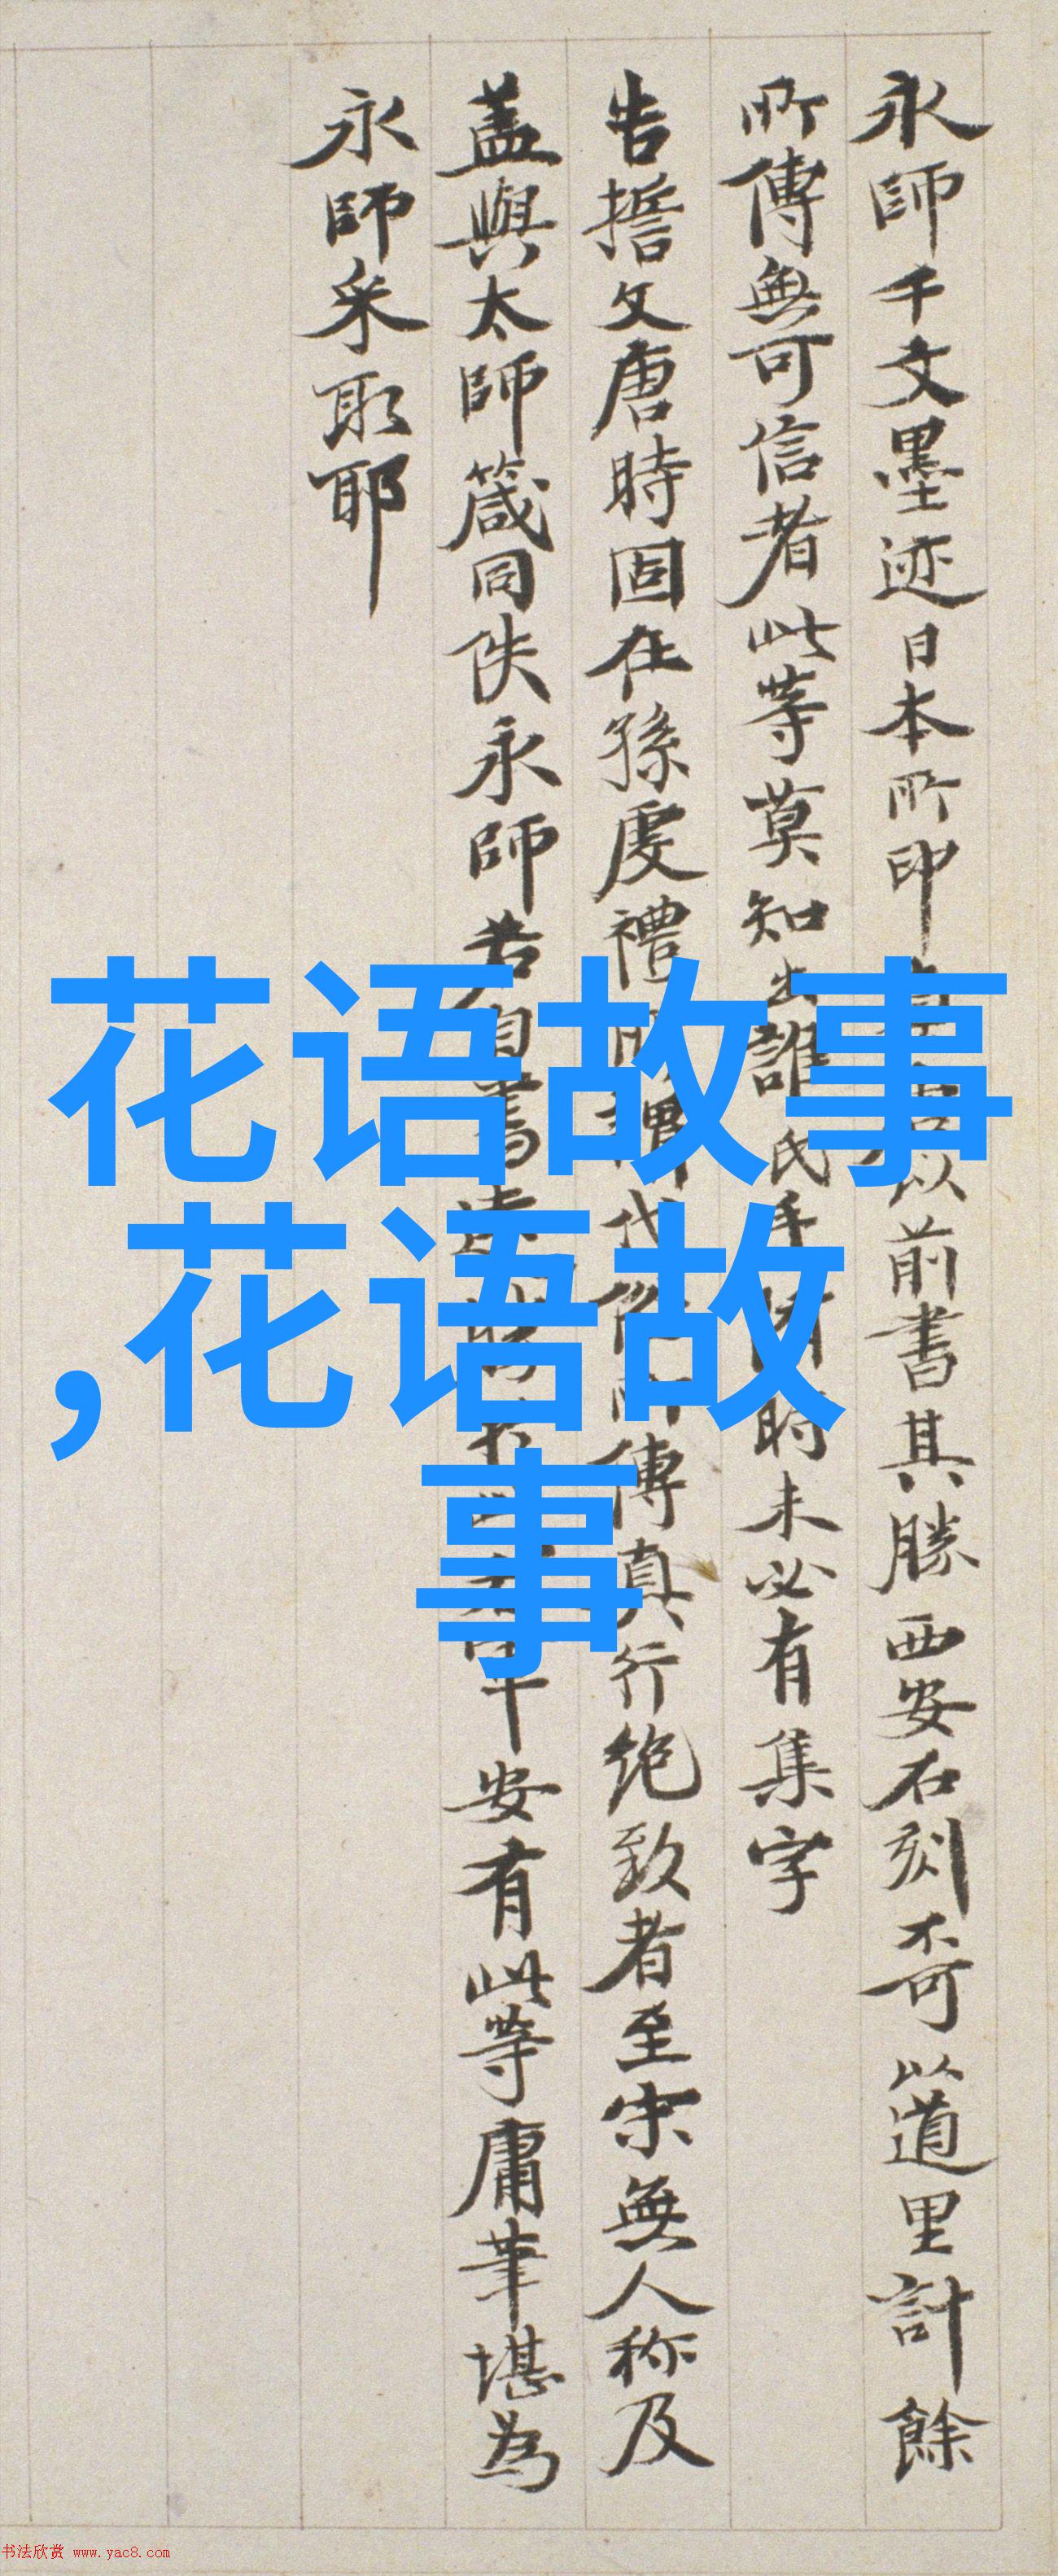 永師千文墨迹日本所印
以前書其勝西安石刻不可以道里計餘
所傳無可信者此等莫知出誰氏手
時未必有集字
告誓文唐時固在孫虔禮
代
傳真行絶致者至宋無人称及
蓋與太師箴同佚永師若自書
安有此等庸筆堪為
永師采取耶
花语故事
,花语故
事
书法欣赏 www.yac8.com